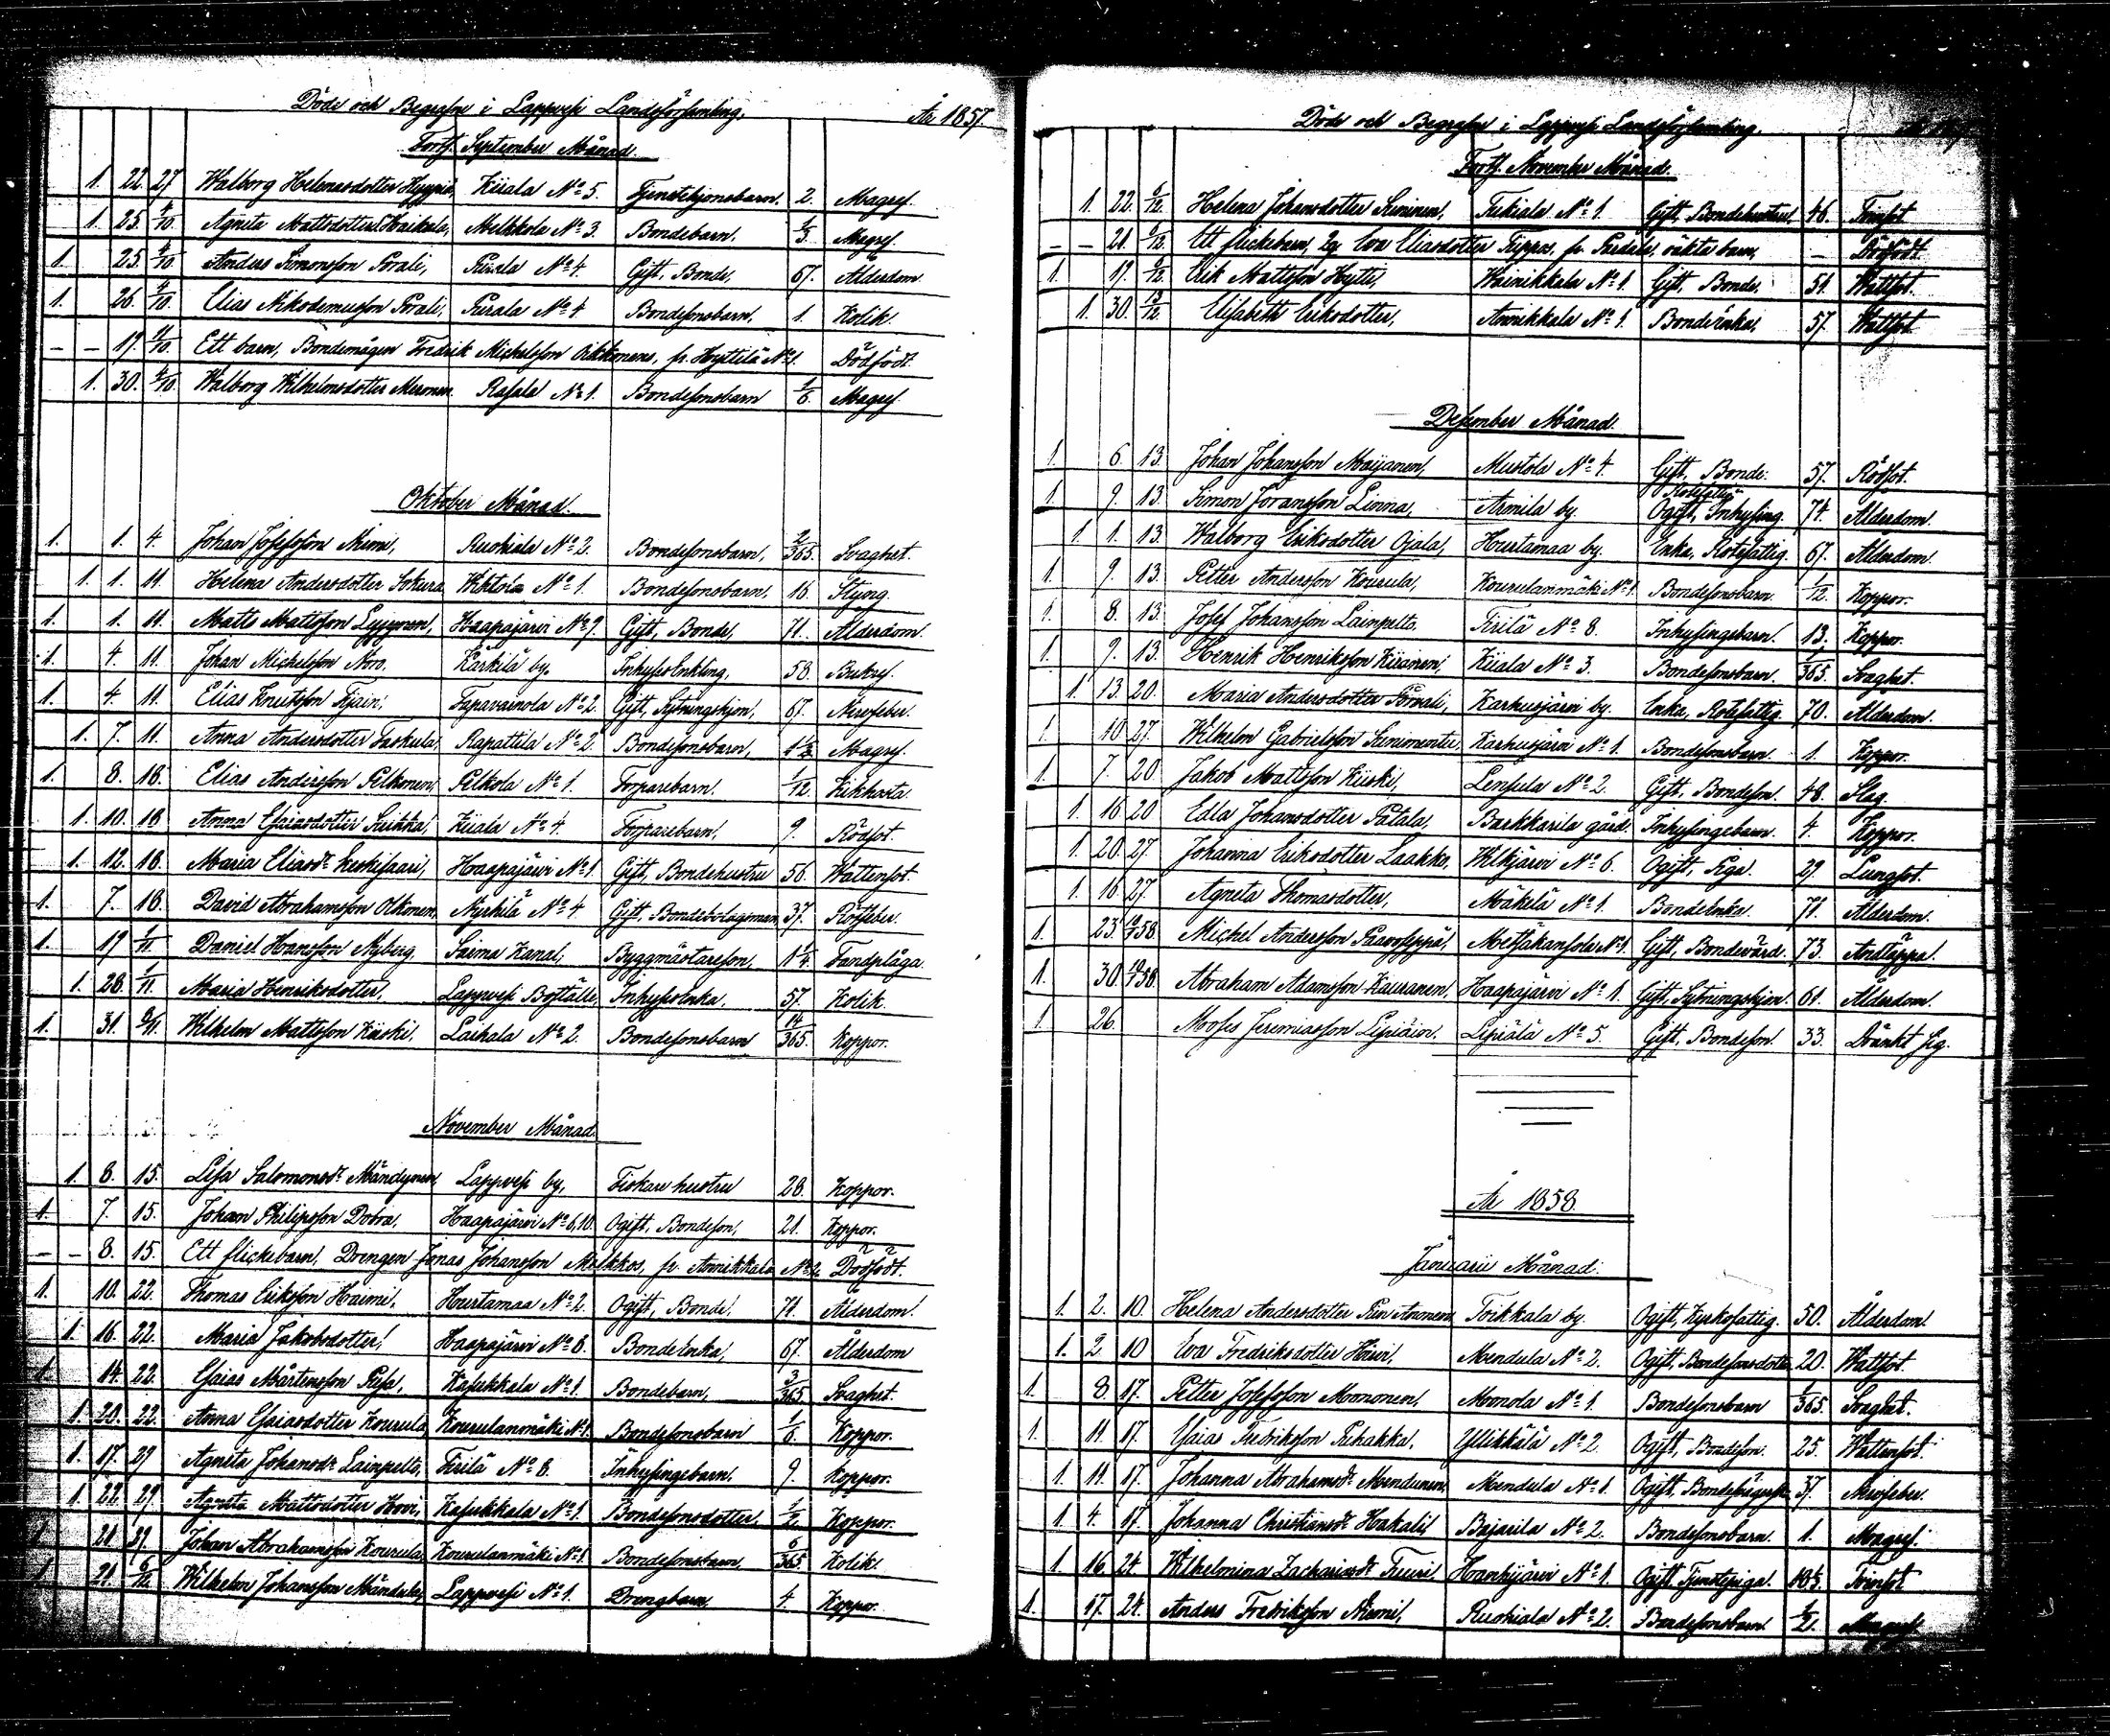 Döde och Begrafne i Lappvesi Landsförsamling. År 1857.
Forts. September Månad.
1. 22. 27 Walborg Helenasdotter Hyyriä, Kiiala No 5. Tjenstehjonsbarn. 2. Magref.
1. 25. 4/10. Agneta Mattsdotter Haikala, Melkkola No 3. Bondebarn. 1/3 Magref.
1. 25. 4/10 Anders Simonsson Porali, Purala No 4. Gift, Bonde, 67. Ålderdom.
1. 26. 4/10. Elias Nikodemusson Porali, Purala No 4 Bondesonsbarn, 1. Kolik.
– – 19. 4/10. Ett barn, Bondemågen Fredrik Michelsson Oikkonens, fr. Hyttilä No 1. Dödfödt.
1. 30. 4/10. Walborg Wilhelmsdotter Meronen. Rasala No 1. Bondesonsbarn 1/6 Magref.
Oktober Månad.
1. 1. 4. Johan Josefsson Niemi, Ruohiala No 2. Bondesonsbarn, 2/365. Svaghet.
1. 1. 11. Helena Andersdotter Sokura Wiktola No 1. Bondesonsbarn. 16. Styng.
1. 1. 11. Matts Mattsson Lyyjynen, Haapajärvi No 9. Gift, Bonde, 71. Ålderdom.
1. 4. 11. Johan Michelsson Noro. Kärkilä by. Inhyses Enkling, 58. Bukref.
1. 4. 11. Elias Knutsson Tjäin, Tapavainola No 2. Gift, Sytningshjon, 67. Nervfeber.
1. 7. 11. Anna Andersdotter Taskula, Rapattila No 2. Bondesonsbarn, 1 1/2 Magref.
1. 8. 18. Elias Andersson Pelkonen, Pelkola No 1. Torparebarn. 1/12. Kikhosta.
1. 10. 18 Anna Esaiasdotter Sirkka, Kiiala No 4. Torparebarn, 9. Rödsot.
1. 12. 18. Maria Eliasdr Keskisaari, Haapajärvi No 1. Gift, Bondehustru 56. Wattensot.
1. 7. 18. David Abrahamsson Olkonen, Nyrhilä No 4. Gift, Bondebolagsman 37. Rötfeber.
1. 19 1/11. Daniel Hansson Nyberg, Saima Kanal, Byggmästareson, 1 1/4. Tandplåga.
1. 28. 1/11. Maria Henriksdotter, Lappvesi Boställe, Inhyses Enka, 57. Kolik.
1. 31. 8/11. Wilhelm Mattsson Kiiski. Laihala No 2. Bondesonsbarn 14/365. Koppor.
November Månad.
1. 8. 15. Lisa Salomonsdr Mändynen, Lappvesi by, Fiskare hustru 28. Koppor.
1. 7. 15. Johan Philipsson Dobra, Haapajärvi No 6,10. Ogift, Bondeson, 21. Koppor.
– – 8. 15. Ett flickebarn, Drengen Jonas Johansson Melkkos, fr. Armikkala No 2 Dödfödt.
1. 10. 22. Thomas Eriksson Haimi, Hurtamaa No 2. Ogift, Bonde, 71. Ålderdom.
1. 16. 22. Maria Jakobsdotter, Haapajärvi No 8. Bonde Enka, 67. Ålderdom
1 14. 22. Esaias Mårtensson Pusa, Kasukkala No 1. Bondebarn, 3/365. Svaghet.
1. 20. 22. Anna Esaiasdotter Kourula, Kourulanmäki No 1. Bondesonsbarn 1/6 Koppor.
1. 17. 29 Agneta Johansdr Lainpelto, Tirilä No 8. Inhysingebarn. 9. Koppor.
1. 22. 29. Agneta Mattsdotter Hovi, Kasukkala No 1. Bondesonsdotter. 1/2. Koppor.
1 21. 29. Johan Abrahamsson Kourula Kourulanmäki No 1. Bondesonsbarn, 6/365. Kolik.
1 21. 6/12. Wilhelm Johansson Mändula, Lappvesi No 1. Drengbarn, 4. Koppor.
Döde och Begrafne i Lappvesi Landsförsamling.
Forts. November Månad.
1. 22. 6/12. Helena Johansdotter Suninen, Tukiala No 1. Gift, Bondehustru 46. Tvinsot
– – 21. 6/12. Ett flickebarn, Eva Eliasdotter Tuppas, fr. oäkta barn, – Dödfödt.
1. 19. 6/12. Erik Mattsson Hytti, Wainikkala No 1. Gift, Bonde. 51. Wattsot.
1. 30. 13/12 Elisabeth Eriksdotter, Armikkala No 1. Bonde Enka, 57. Wattsot.
Desember Månad.
1. 6. 13. Johan Johansson Maijanen, Mustola No 4. Gift, Bonde. 57. Rödsot.
1. 9. 13. Simon Joransson Linna, Armila by. Rotefattig Ogift, Inhysing. 74. Ålderdom.
1. 1. 13. Walborg Eriksdotter Ojala, Hurtamaa by. Enka, Rotefattig. 67. Ålderdom.
1. 9. 13. Petter Andersson Kourula, Kourulanmäki No 1. Bondesonsbarn. 1/12. Koppor.
1. 8. 13. Josef Johansson Lainpelto, Tirilä No 8. Inhysingebarn. 13. Koppor.
1. 9. 13. Henrik Henriksson Kiiranen, Kiiala No 3. Bondesonsbarn. 1/365 Svaghet.
1. 13. 20. Maria Andersdotter Porvali, Karhusjärvi by. Enka, Rotefattig. 70. Ålderdom.
1. 10 27. Wilhelm Gabrielsson Sunimento, Karhusjärvi No 1. Bondesonsbarn. 1. Koppor.
1. 7. 20. Jakob Mattsson Kiiski, Lensula No 2. Gift, Bondeson. 48. Slag.
1. 16. 20. Edla Johansdotter Patala, Barkkarila gård. Inhysingebarn. 4. Koppor.
1. 20. 27. Johanna Eriksdotter Laakko, Wilkjärvi No 6. Ogift, Piga. 29 Lungsot.
1. 16. 27. Agneta Thomasdotter, Mäkelä No 1. Bonde Enka. 71. Ålderdom.
1. 23. 10/1 58. Michel Andersson Paavoseppä, Metsäkansola No 1. Gift, Bondevärd. 73. Andtäppa.
1. 30. 10/1 58. Abraham Adamsson Kauranen, Haapajärvi No 1. Gift, Sytningshjon. 61. Ålderdom.
1. 26. Moses Jeremiasson Lypiäin. Lypiälä No 5. Gift, Bondeson. 33. Dränkt sig.
År 1858.
Januarii Månad.
1. 2. 10. Helena Andersdotter Toikkala by. Ogift, Kyrkofattig. 50. Ålderdom.
1. 2 10 Eva Fredriksdotter Hirvi, Mendula No 2. Ogift, Bondesonsdotter 20. Wattsot.
1. 8. 17. Petter Josefsson Monnonen, Monnola No 1. Bondesonsbarn 1/365. Svaghet.
1. 11. 17. Esaias Fredriksson Puhakka. Ylikkälä No 2. Ogift, Bondeson. 25. Wattensot.
1. 11. 17. Johanna Abrahamsdr Mendunen, Mendula No 1. Ogift, 37. Nervfeber.
1. 4. 17. Johanna Christiansdr Hakalil Bajarila No 2. Bondesonsbarn. 1. Magref.
1. 16. 24. Wilhelmina Zachariasdr Tuuri, Hanhijärvi No 1. Ogift Tjenstepiga. Tvinsot
1. 17. 24. Anders Fredriksson Niemi, Ruohiala No 2. Bondesonsbarn. 1/2. Magref.